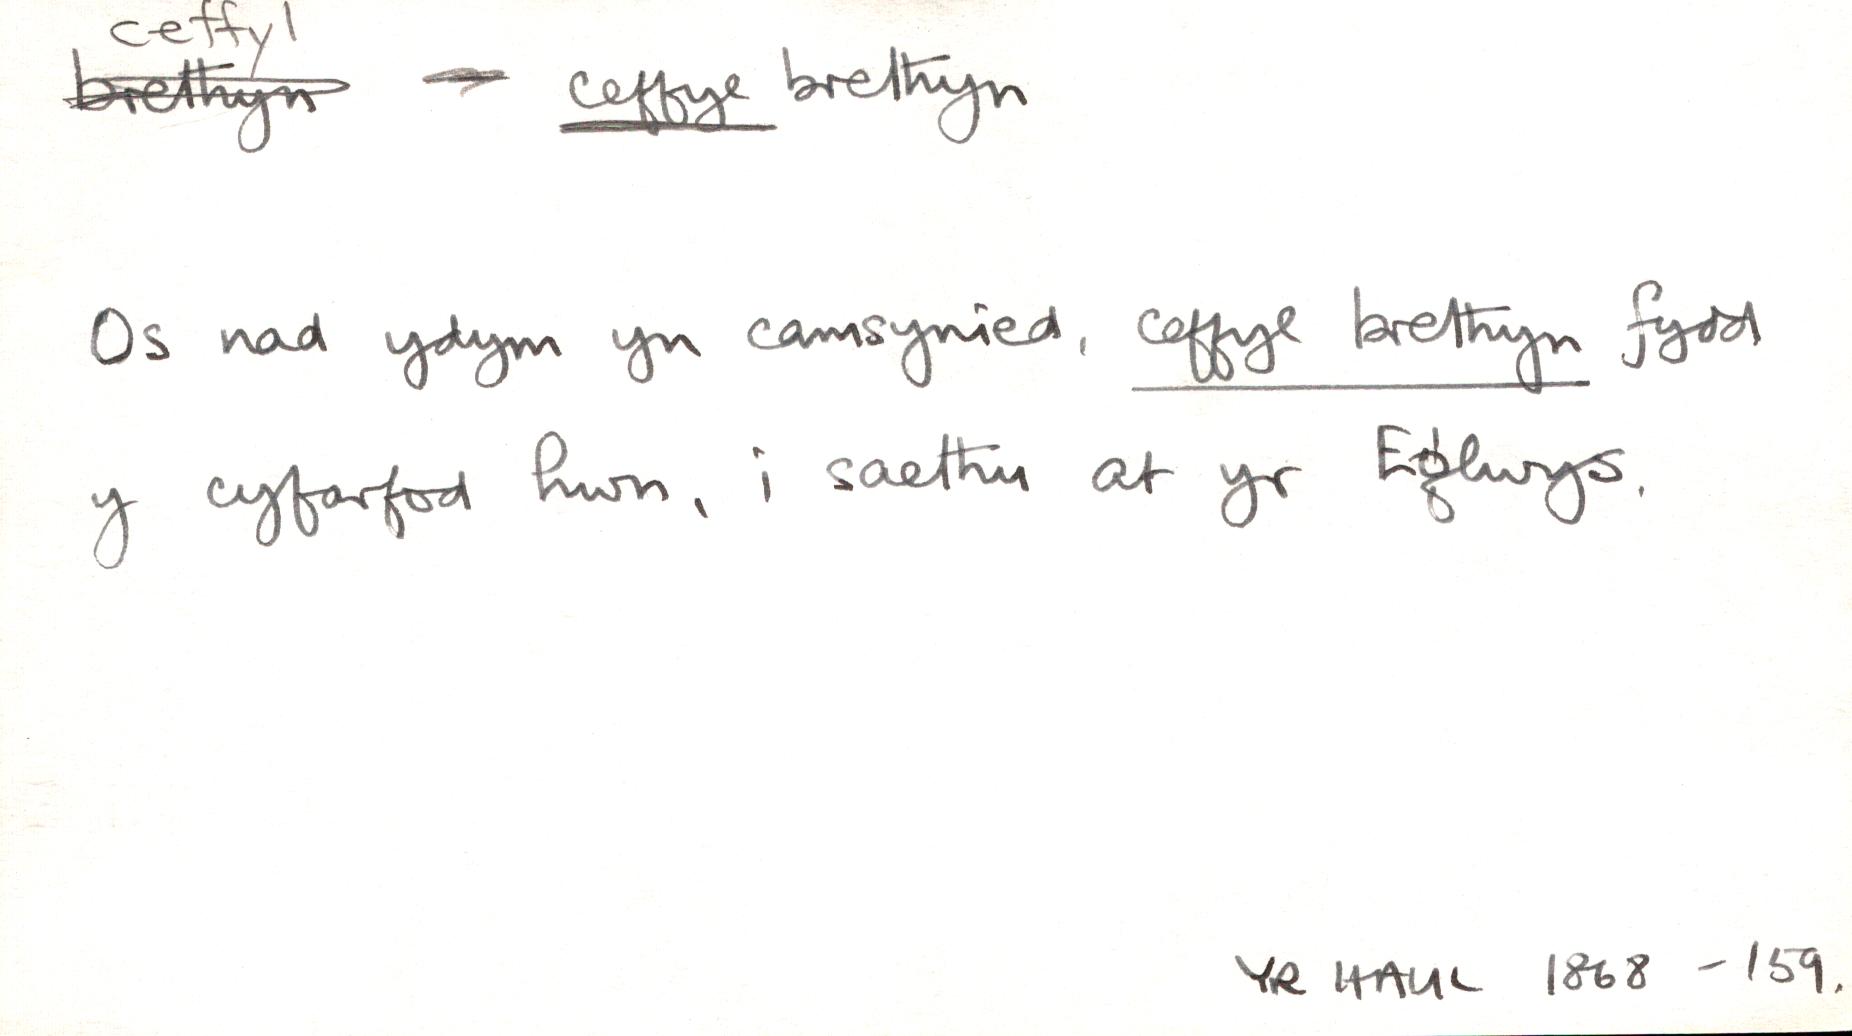 ceffyl
brethyn — ceffyl brethyn
Os nad ydym yn camsynied, ceffyl brethyn fydd
y cyfarfod hwn, i saethu at yr Eglwys.
YR HAUL 1868 - 159.